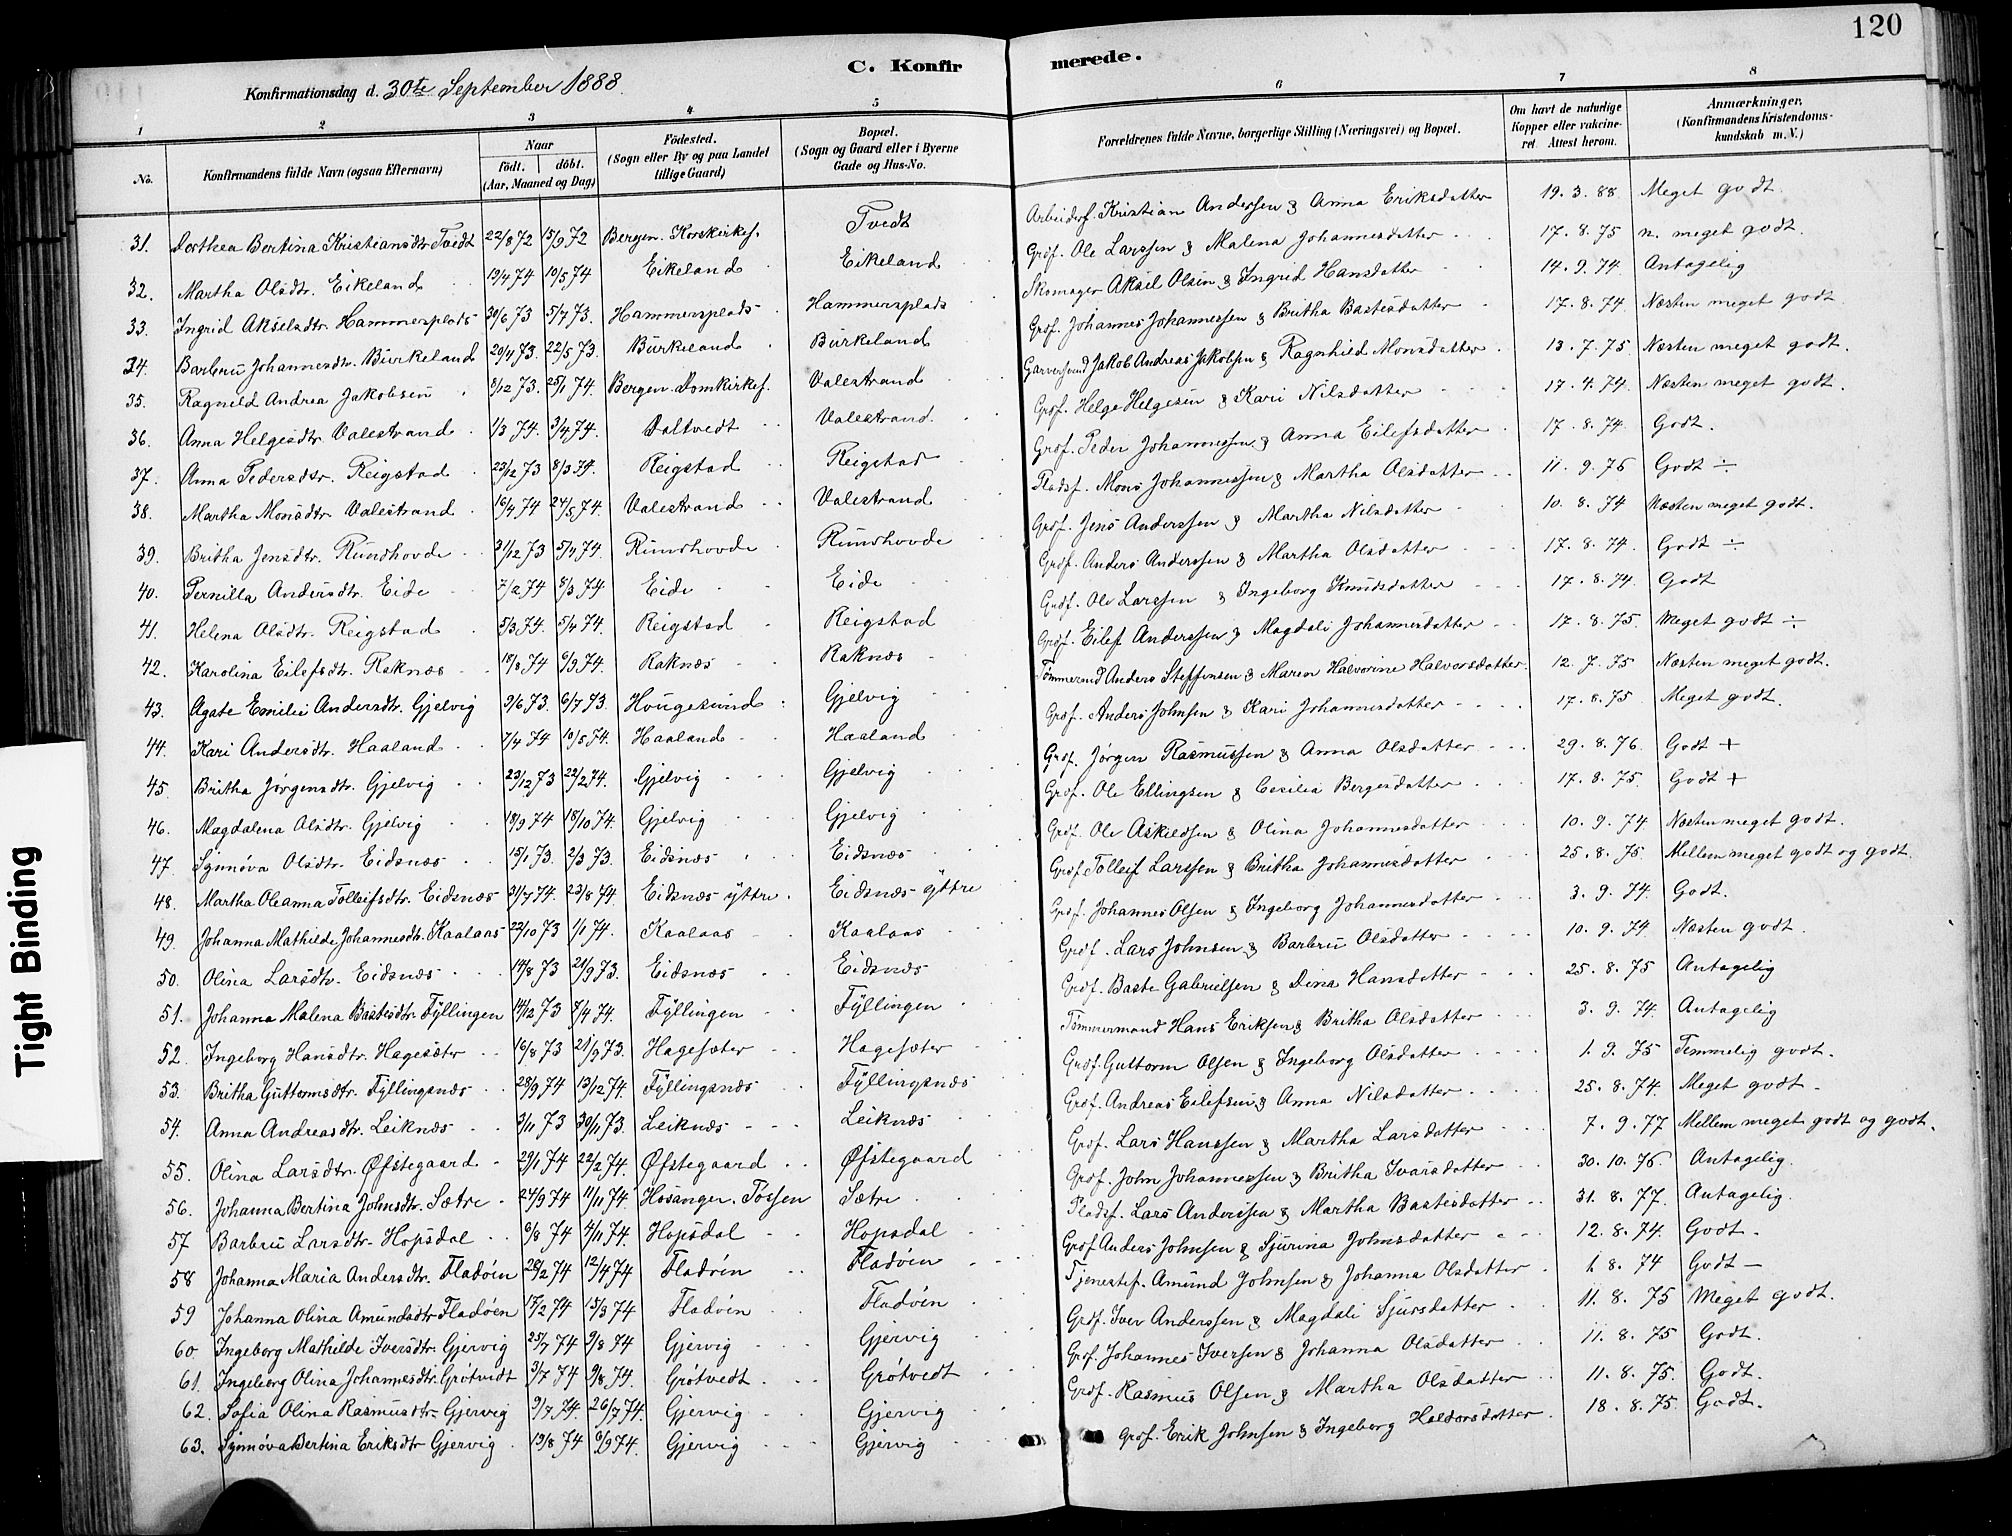 120
C. Konfirmerede.
Konfirmationsdag d. 30te September 1888.
1 2 3 4 5 6 7 8
No. Konfirmandens fulde Navn (ogsaa Efternavn) Naar født. døbt. (Aar, Maaned og Dag) Fødested. (Sogn eller By og paa Landet tillige Gaard) Bopæl. (Sogn og Gaard eller i Byerne Gade og Hus-No. Forældrenes fulde Navne, borgerlige Stilling (Næringsvei) og Bopæl. Om havt de naturlige Kopper eller vakcineret. Attest herom. Anmærkninger, (Konfirmandens Kristendomskundskab m. V.)
31. Dorthea Bertina Kristiansdtr Tvedt 22/8 72 15/9 72 Bergen. Korskirkes. Tvedt Arbeidesf. Kristian Anderssen & Anna Eriksdatter 19. 3. 88 Meget godt.
32. Martha Olsdtr. Eikeland 19/4 74 10/5 74 Eikeland Eikeland Grdf. Ole Larssen & Malena Johannesdatter 17. 8. 75 n. meget godt.
33. Ingrid Akselsdtr. Hammersplads 30/6 73 5/7 73. Hammersplads Hammersplads Skomager Aksel Olsen & Ingrid Hansdatter 14. 9. 74. Antagelig
34. Barbru Johannesdtr. Burkeland 20/4 73. 22/5 73. Burkeland Burkeland Grdf. Johannes Johannessen & Britha Bastesdatter 17. 8. 74 Næsten meget godt
35. Ragnild Andrea Jakobsen 8/12 73. 25/1 74. Bergen. Domkirkes. Valestrand Garversvend Jakob Andreas Jakobsen & Ragnhild Monsdatter 13. 7. 75. Næsten meget godt.
36. Anna Helgesdtr. Valestrand 1/3 74. 3/4 74. Daltvedt Valestrand. Grdf. Helge Helgesen & Kari Nilsdatter 17. 4. 74. Næsten meget godt.
37. Anna Pedersdtr. Reigstad 23/12 73 8/3 74. Reigstad Reigstad Grdf. Peder Johannessen & Anna Eilefsdatter 17. 8. 74. Godt.
38. Martha Monsdtr. Valestrand 16/4 74 24/5 74. Valestrand Valestrand Pladsf. Mons Johannessen & Martha Olsdatter 11. 9. 76 Godt ÷
39. Britha Jensdtr. Rundhovde 31/12 73 5/4 74. Rundhovde Rundhovde Grdf. Jens Anderssen & Martha Nilsdatter 10. 8. 74 Næsten meget godt.
40. Pernilla Andersdtr. Eide 7/2 74 8/3 74 Eide Eide Grdf. Anders Anderssen & Martha Olsdatter 17. 8. 74. Godt ÷
41. Helena Olsdtr. Reigstad 5/3 74. 5/4 74. Reigstad Reigstad Grdf. Ole Larssen & Ingeborg Knudsdatter 17. 8. 74. Godt
42. Karolina Eilefsdtr. Raknæs 18/8 74 6/9 74. Raknæs Raknæs Grdf. Eilef Anderssen & Magdali Johannesdatter 17. 8. 75. Meget godt ÷
43. Agate Emilie Andersdtr. Gjelvig 9/6 73. 6/7 73. Hougesund Gjelvig Tømmermd Anders Steffensen & Maren Halvorine Halvorsdatter. 12. 7. 75 Næsten meget godt.
44. Kari Andersdtr. Haaland 7/4 74 10/5 74. Haaland Haaland Grdf. Anders Johnsen & Kari Johannesdatter 17. 8. 75 Meget godt.
45. Britha Jørgensdtr. Gjelvig 23/12 73 22/2 74. Gjelvig Gjelvig Grdf. Jørgen Rasmussen & Anna Olsdatter 29. 8. 76. Godt +
46. Magdalena Olsdtr. Gjelvig 18/9 74 18/10 74. Gjelvig Gjelvig Grdf. Ole Ellingsen & Cecilia Bergesdatter 17. 8. 75 Godt +
47. Synnøva Olsdtr. Eidsnæs 15/1 73. 2/3 73. Eidsnæs Eidsnæs Grdf. Ole Askildsen & Olina Johannesdatter 10. 9. 74. Næsten meget godt.
48. Martha Oleanna Tolleifsdtr. Eidsnæs 31/7 74. 23/8 74. Eidsnæs yttre. Eidsnæs yttre Grdf. Tolleif Larssen & Britha Johannesdatter 25. 8. 75. Mellem meget godt og godt.
49. Johanna Mathilde Johannesdtr. Kaalaas 22/10 73 1/1 74. Kaalaas Kaalaas Grdf. Johannes Olsen & Ingeborg Johannesdatter 3. 9. 74. Godt.
50. Olina Larsdtr. Eidsnæs 14/8 73 21/9 73. Eidsnæs Eidsnæs Grdf. Lars Johnsen & Barbru Olsdatter 10. 9. 74. Næsten godt.
51. Johanna Malena Bastesdtr. Fyllingen 14/12 73 7/4 74. Fyllingen Fyllingen Grdf. Baste Gabrielsen & Dina Hansdatter 25. 8. 75 Antagelig
52. Ingeborg Hansdtr. Hagesæter 16/8 73 21/9 73. Hagesæter Hagesæter Tømmermand Hans Eriksen & Britha Olsdatter 3. 9. 74. Antagelig
53. Britha Guttormsdtr. Fyllingsnæs 28/9 74 13/12 74. Fyllingsnæs Fyllingsnæs Grdf. Guttorm Olsen & Ingeborg Olsdatter 1. 9. 75 Temmelig godt.
54. Anna Andreasdtr. Leiknæs 3/11 73 30/11 73. Leiknæs Leiknæs Grdf. Andreas Eilefsen & Anna Nilsdatter 25. 8. 74. Meget godt.
55. Olina Larsdtr. Øfstegaard 29/1 74 22/2 74. Øfstegaard Øfstegaard Grdf. Lars Hanssen & Martha Larsdatter 7. 9. 77 Mellem meget godt og godt.
56. Johanna Bertina Johnsdtr. Sætre 24/9 74 11/11 74. Hosanger. Tossen Sætre Grdf. John Johannessen & Britha Ivarsdatter 30. 10. 76. Antagelig.
57 Barbru Larsdtr. Hopsdal 6/8 74 4/11 74. Hopsdal Hopsdal Pladsf. Lars Anderssen & Martha Bastesdatter 31. 8. 77. Antagelig.
58 Johanna Maria Andersdtr. Fladøen 28/2 74 12/4 74 Fladøen Fladøen Grdf Anders Johnsen & Sjurina Johnsdatter 12. 8. 74. Godt.
59 Johanna Olina Amundsdtr Fladøen 17/2 74 15/3 74 Fladøen Fladøen Tjenestef. Amund Johnsen & Johanna Olsdatter 1. 8. 74 Godt
60. Ingeborg Mathilde Iversdtr. Gjervig 25/7 74 9/8 74 Gjervig Gjervig Grdf. Iver Anderssen & Magdali Sjursdatter 11. 8. 75 Meget godt.
61. Ingeborg Olina Johannesdtr. Grøtvedt 3/7 74 9/8 74. Grøtvedt Grøtvedt Grdf. Johannes Iversen & Johanna Olsdatter 11. 8. 75 Godt.
62. Sofia Olina Rasmusdtr. Gjervig 9/7 74. 26/7 74. Gjervig Gjervig Grdf. Rasmus Olsen & Martha Olsdatter 11. 8. 75. Godt.
63. Synnøva Bertina Eriksdtr Gjervig 19/8 74 6/9 74. Gjervig Gjervig Grdf. Erik Johnsen & Ingeborg Haldorsdatter. 18. 8. 75. Godt.
Tight Binding